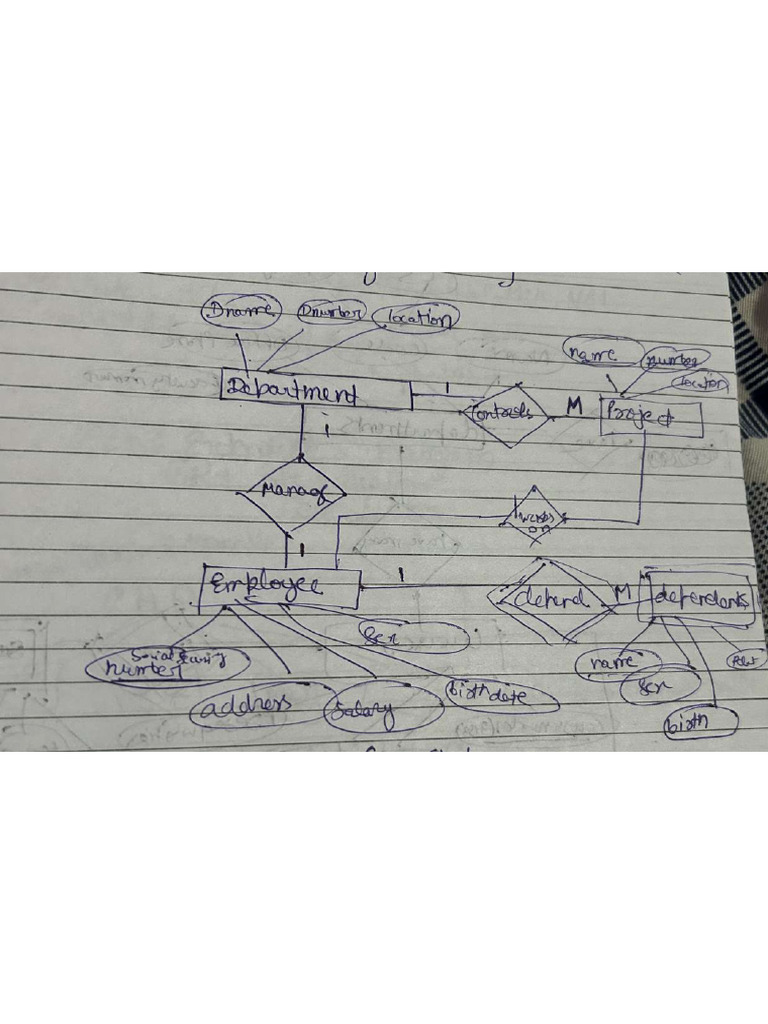 Dname Dnumber location
name number
location
Department 1 Controls M Project
1
Manag
works
on
1
Employee 1 depend M dependents
Sex
Social Security
number
name
address Salary birthdate
Sex
birth